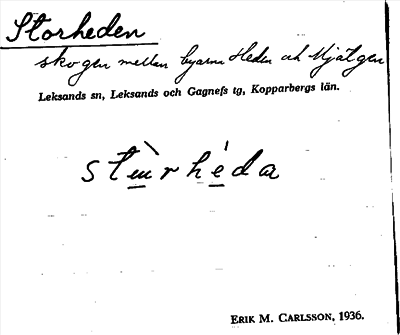 Storheden
skogen mellan byarna Heden och Mjälgen
Leksands sn, Leksands och Gagnefs tg, Kopparbergs län.
stɯ̀rhéda
ERIK M. CARLSSON, 1936.